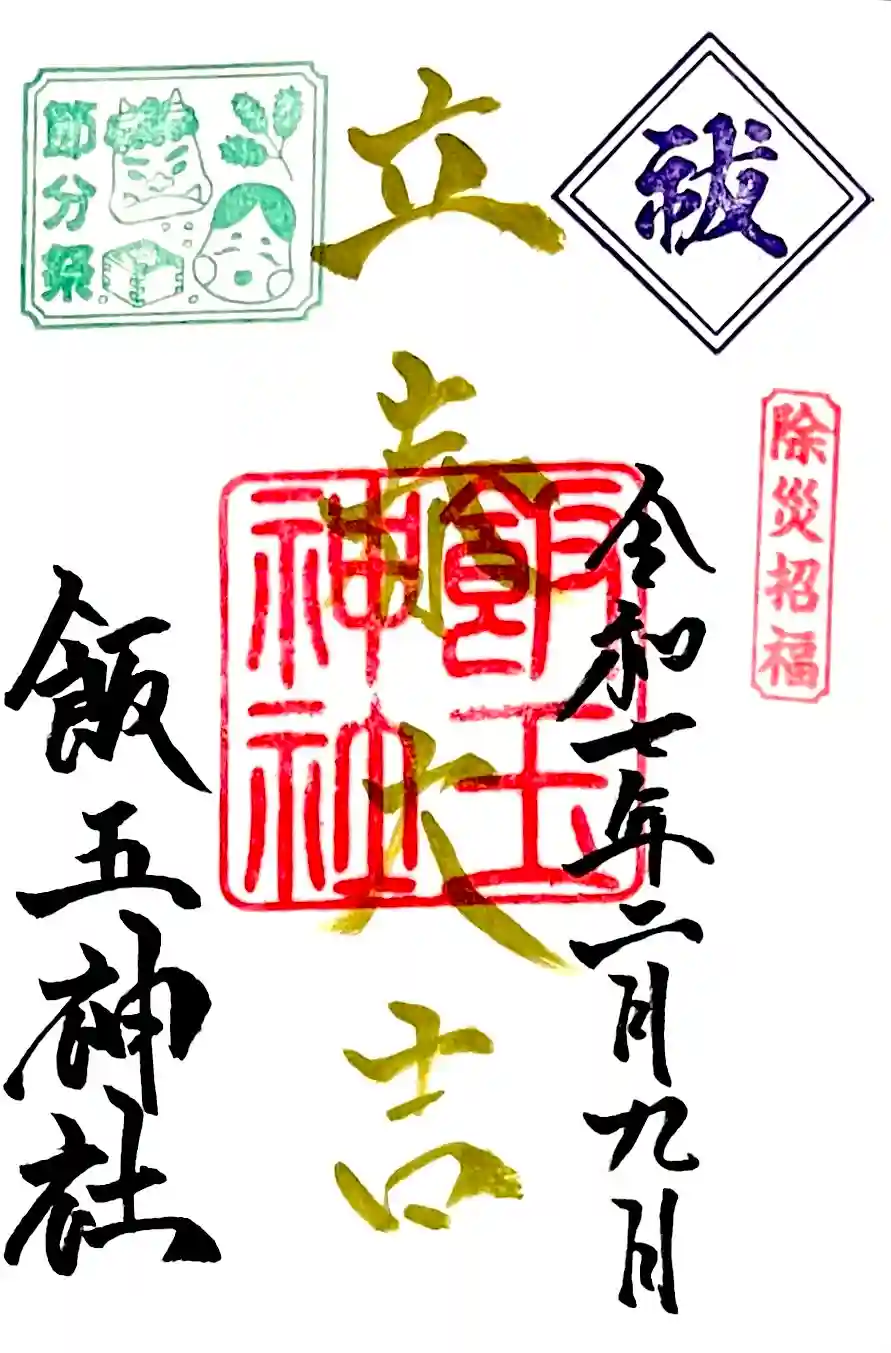 祓
除災招福
令和七年二月九日
立春大吉
飯玉
神社
節分祭
飯玉神社